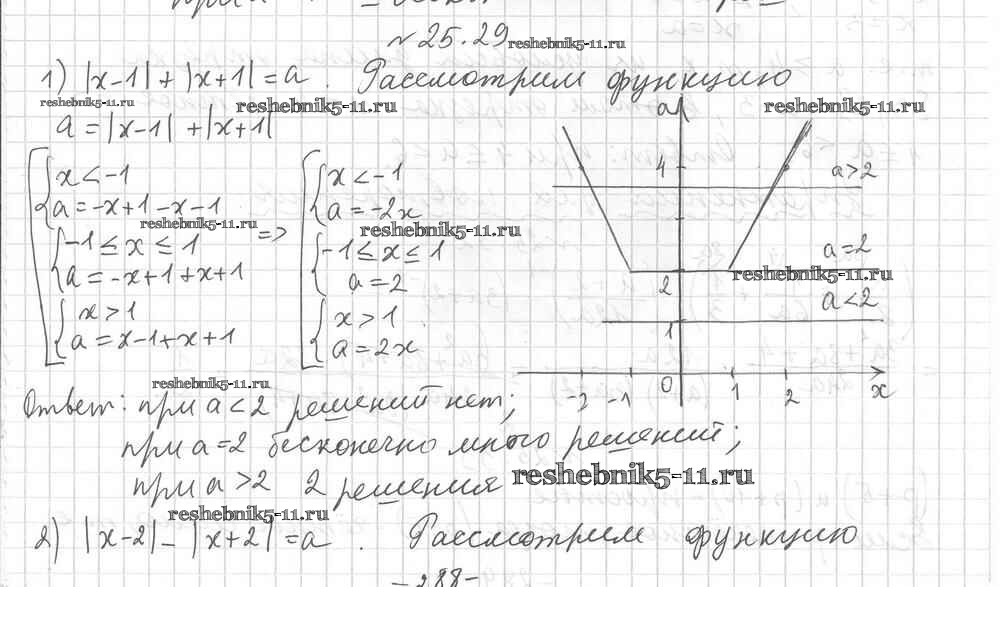 № 25.29 reshebnik5-11.ru
1) |x-1| + |x+1| = a. Рассмотрим функцию
reshebnik5-11.ru reshebnik5-11.ru reshebnik5-11.ru
a = |x-1| + |x+1|
a
x < -1
a = -x+1-x-1
reshebnik5-11.ru
-1 ≤ x ≤ 1
a = -x+1+x+1
x > 1
a = x-1+x+1
=>
x < -1
a = -2x
reshebnik5-11.ru
-1 ≤ x ≤ 1
a = 2
x > 1
a = 2x
4
a > 2
a = 2
reshebnik5-11.ru
2
a < 2
1
0
-2 -1 1 2 x
reshebnik5-11.ru
Ответ: при a < 2 решений нет;
при a = 2 бесконечно много решений;
при a > 2 2 решения
reshebnik5-11.ru
reshebnik5-11.ru
2) |x-2| - |x+2| = a. Рассмотрим функцию
-288-